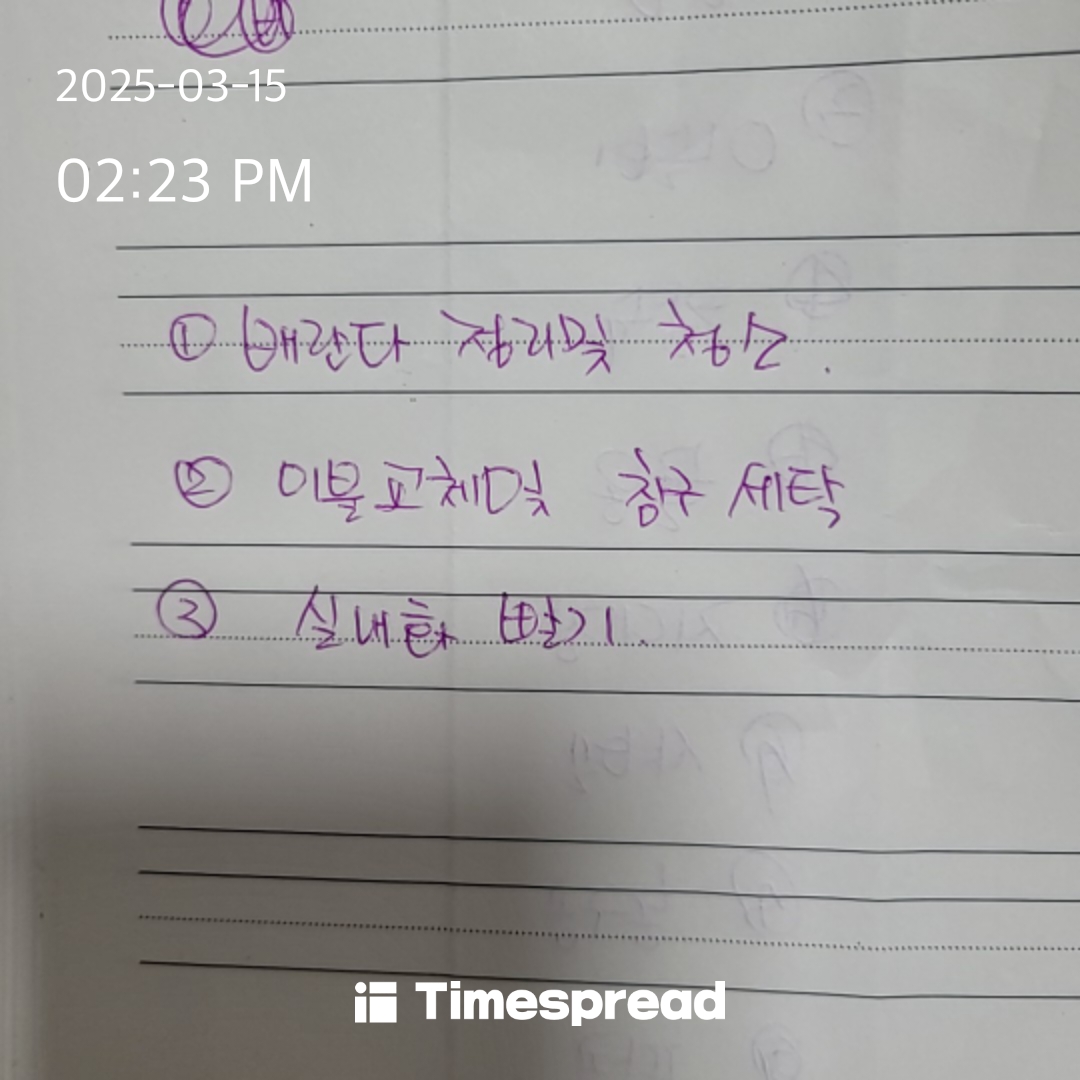 2025-03-15
02:23 PM
① 베란다 정리및 청소.
② 이불교체및 침구 세탁
③ 실내화 빨기.
Timespread